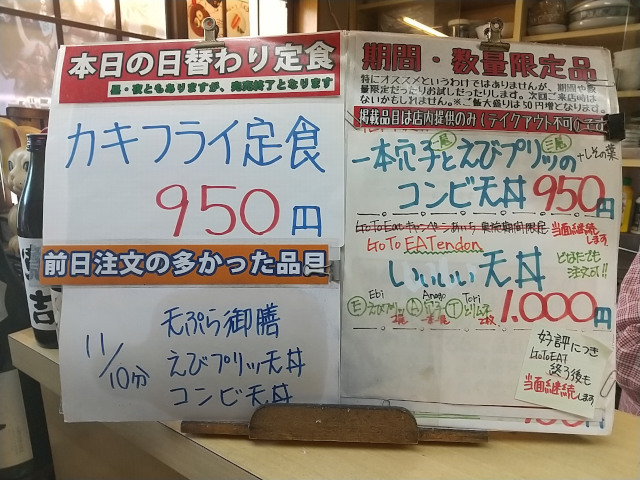 本日の日替わり定食
昼・夜ともありますが、完売終了となります
カキフライ定食
950円
前日注文の多かった品目
11/10分
天ぷら御膳
えびプリッ天丼
コンビ天丼
期間・数量限定品
特にオススメというわけではありませんが、期間や数
量限定だったりお試しだったりします。次回ご来店時は
ないかもしれません。※ご飯大盛りは50円増となります。
掲載品目は店内提供のみ（テイクアウト不可）
一本穴子とえびプリッの
+しその葉
コンビ天丼 950円
GoToEatキャンペーンあいち 実施期間限定
当面継続します
GoTo EATendon
いいいい天丼
となたでも
注文可!!
E Ebi えびプリッ 2尾 A Anago 穴子 一本 T Tori とりムネ 2枚
1.000円
好評につき
GoToEAT
終了後も
当面継続します